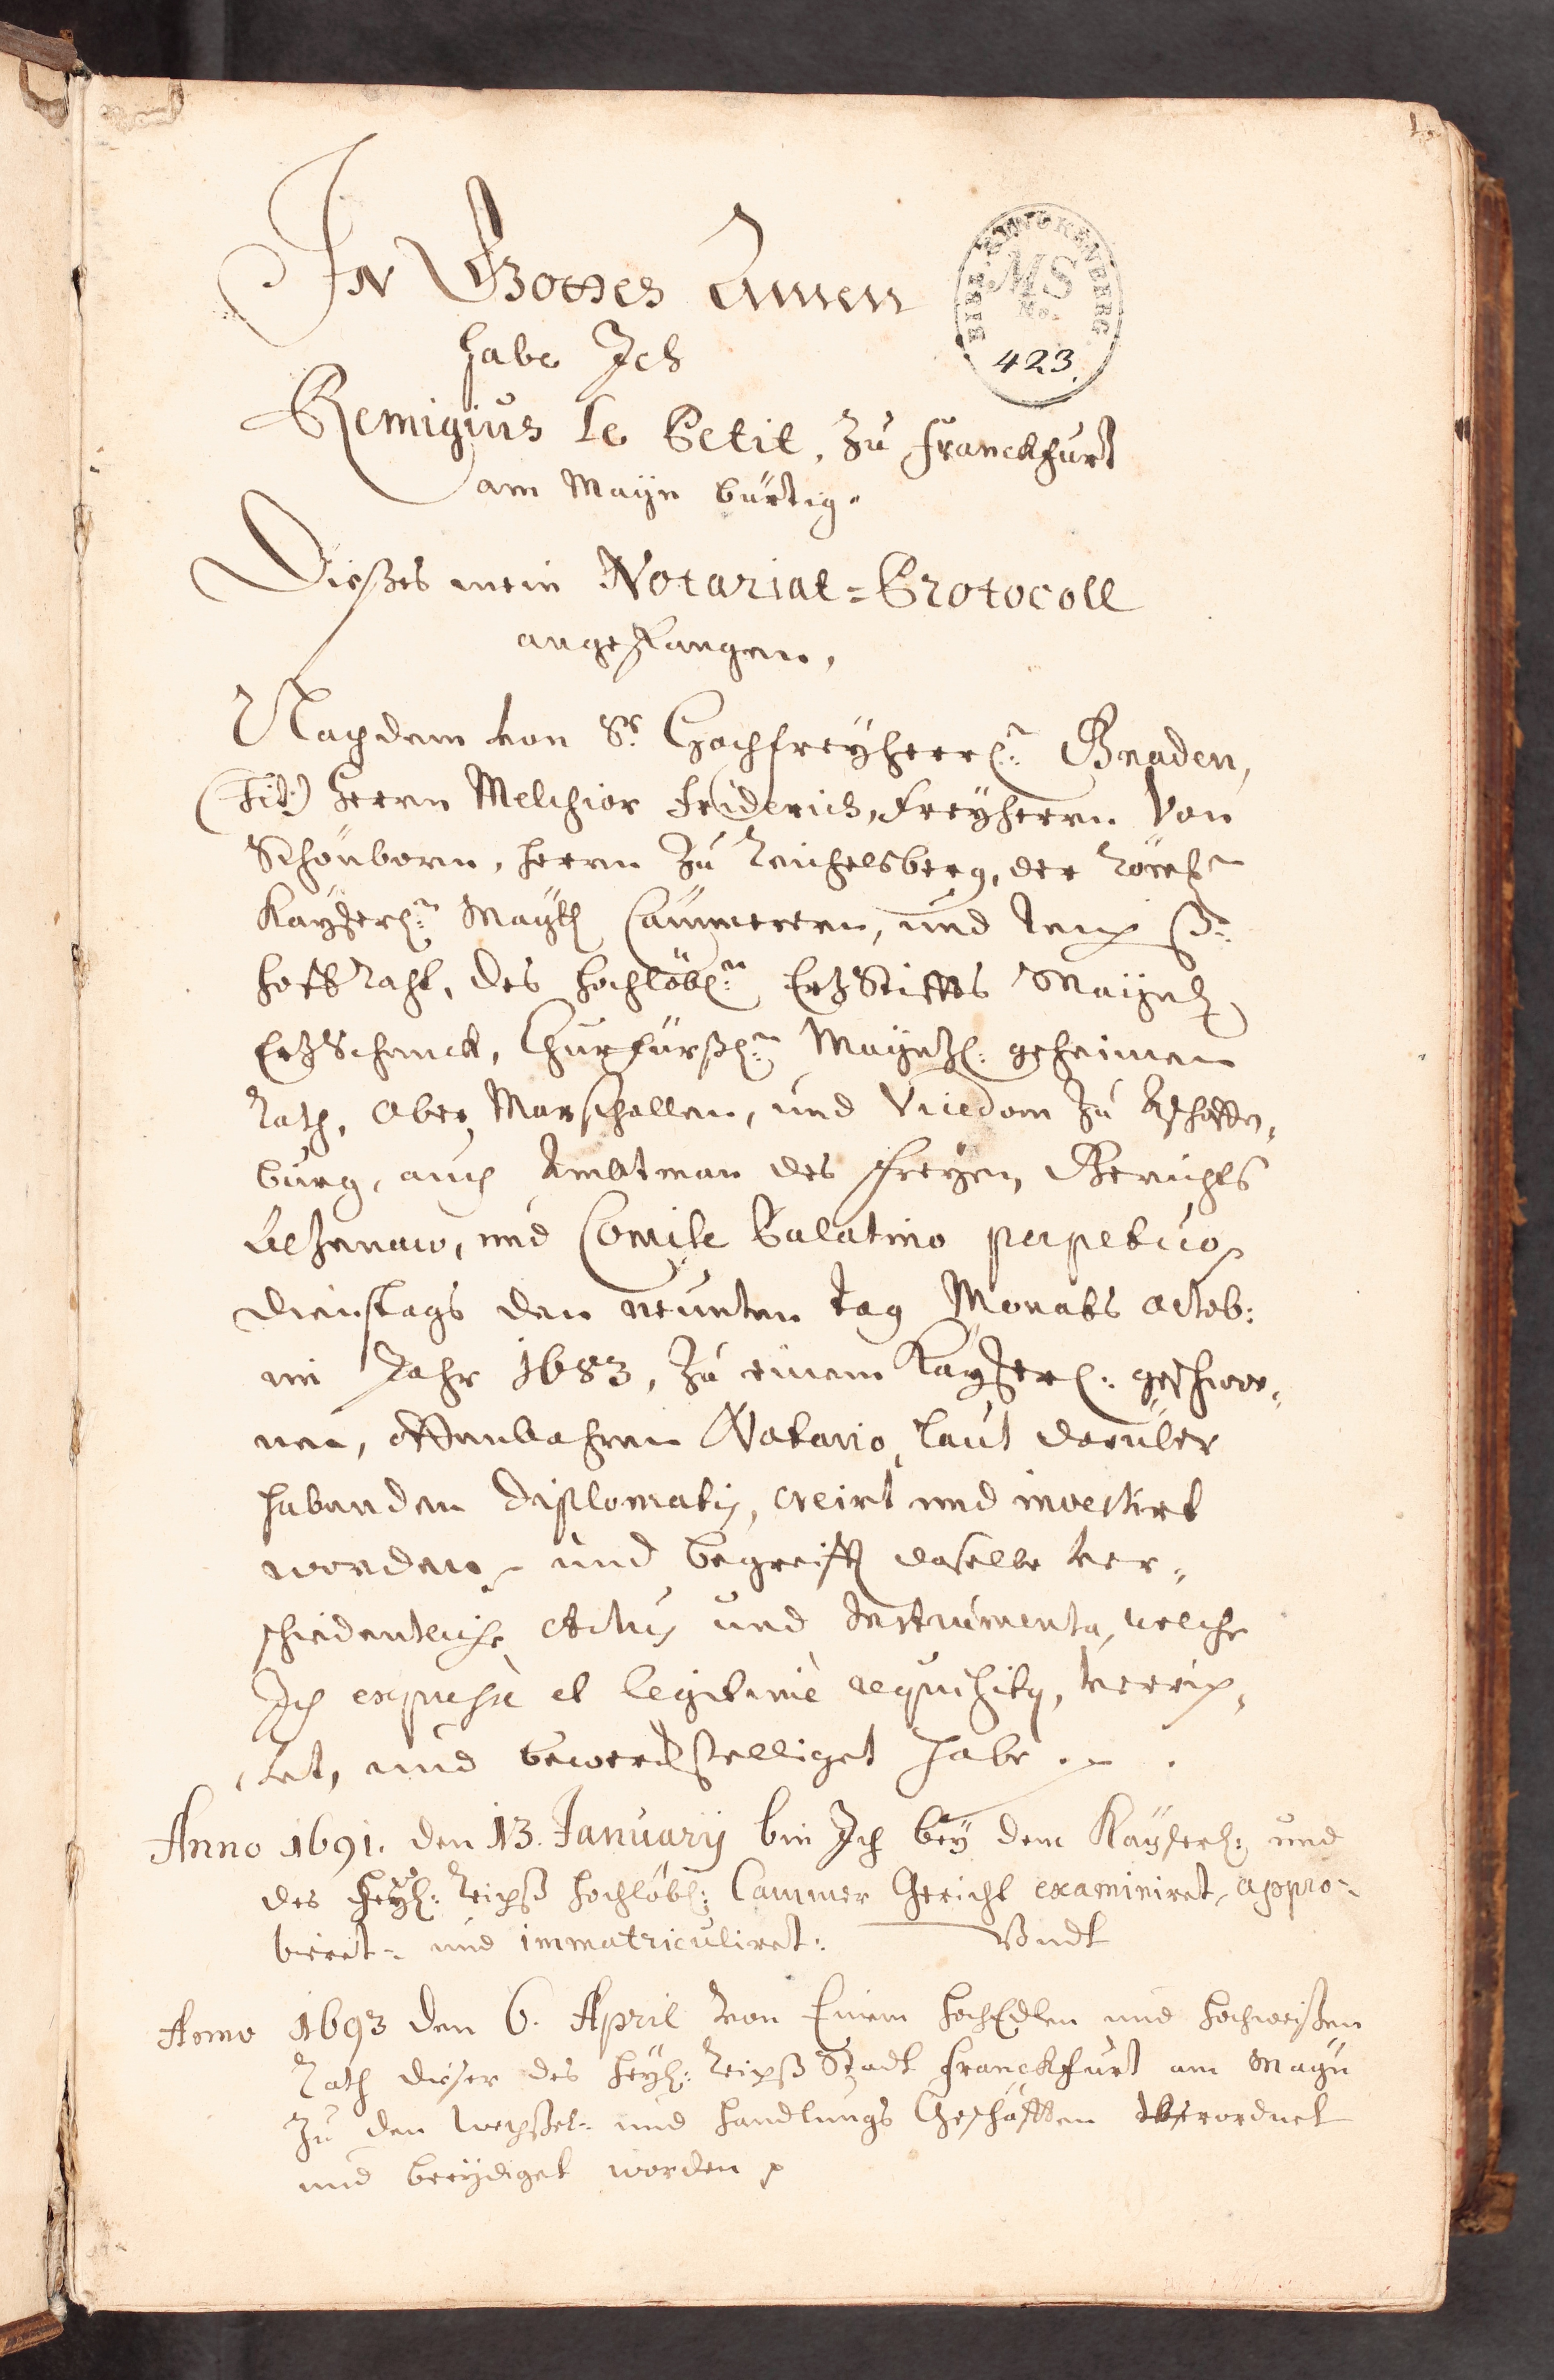 1.
In Gottes Namen
BIBL. SENCKENBERG.
MS
No.
423.
habe Ich
Remigius Le Petit, zu Franckfurt
am Mayn bürtig.
Dießes mein Notariat=Protocoll
angefangen,
Nachdem von Sr. Hochfreyherrl:n Gnaden,
(Tit:) Herrn Melchior Friderich, Freyherrn von
Schönborn, Herrn zu Reichelsberg, der Röm:
Kayserl:n Mayt: Cammerern, und Reichs
Hoff Raht, des Hochlöbl:n ErtzStiffts Mayntz
ErtzSchenck, Churfürstl:n Mayntzl: geheimen
Rath, Ober Marschallen, und Vicedom zu Aschaffen,
burg, auch Ambtman des Freyen Gerichts
Altzenaw, und Comite Palatino perpetuo
Dienstags den neunten tag Monats Octob:
im Jahr 1683, zu einem Kayserl: geschwor,
nen, offenbahren Notario, laut darüber
habenden Diplomatis, creirt und investirt
worden, und begreifft daselbe ver,
schiedentliche Actus und Instrumenta, welche
Ich expressè et legitimè requisitus, verrich,
tet, und bewerckstelliget habe.
Anno 1691. den 13. Januarij bin Ich bey dem Kayserl: und
des Heyl: Reichß Hochlöbl: Cammer Gericht examiniret, appro-
biret- und immatriculiret: Undt
Anno 1693 den 6. April von Einem HochEdlen und Hochweißen
Rath dieser des Heyl: Reichß Stadt Franckfurt am Mayn
zu den Wechßel- und Handlungs Geschäfften verordnet
und beeydiget worden